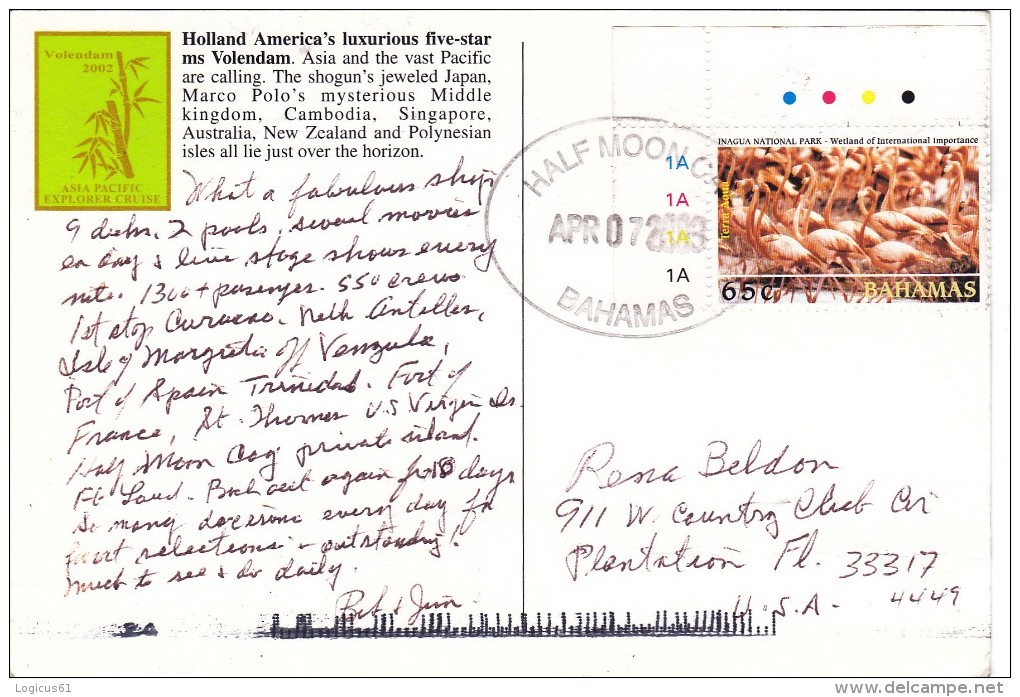 Volendam
2002
ASIA PACIFIC
EXPLORER CRUISE
Holland America's luxurious five-star
ms Volendam. Asia and the vast Pacific
are calling. The shogun's jeweled Japan,
Marco Polo's mysterious Middle
kingdom, Cambodia, Singapore,
Australia, New Zealand and Polynesian
isles all lie just over the horizon.
What a fabulous ship
9 decks. 2 pools, several movies
ea day & live stage shows every
nite. 1300+ pasenger. 550 crews
1st stop Curacao. Neth Antilles,
Isle of Margreta off Venzula,
Port of Spain Trinidad. Fort of
France, St. Thomas US Virgin Is.
Half Moon Cay private island.
Ft Laud. Back out again for 10 days
So many every day for
selections - outstanding!
much to see & do daily.
Bob & Jim
HALF MOON CAY
APR 07
BAHAMAS
1A
1A
1A
1A
INAGUA NATIONAL PARK - Wetland of International Importance
Terra Aqua
65c BAHAMAS
Rena Beldon
911 W. Country Club Cir
Plantation Fl. 33317
4449
U.S.A.
Logicus61
delcampe.net